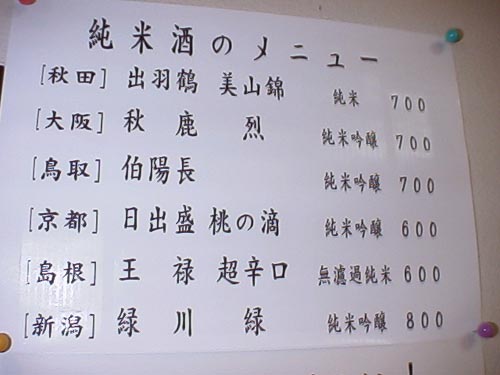 純米酒のメニュー
[秋田] 出羽鶴 美山錦 純米 700
[大阪] 秋鹿 烈 純米吟醸 700
[鳥取] 伯陽長 純米吟醸 700
[京都] 日出盛 桃の滴 純米吟醸 600
[島根] 王禄 超辛口 無濾過純米 600
[新潟] 緑川 緑 純米吟醸 800